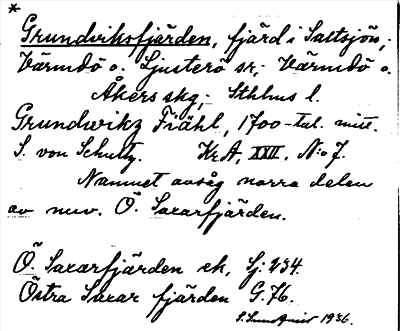 *
Grundviksfjärden, fjärd i Saltsjön,
Värmdö o. Ljusterö sr, Värmdö o.
Åkers skg, Sthlms l.
Grundwikz Fiähl, 1700-tal. mitt.
S. von Schultz. Kr A, XXII. N:o 7.
Namnet avsåg norra delen
av nuv. Ö. Saxarfjärden.
Ö. Saxarfjärden ek, Sj: 234.
Östra Saxar fjärden G. 76.
1936.